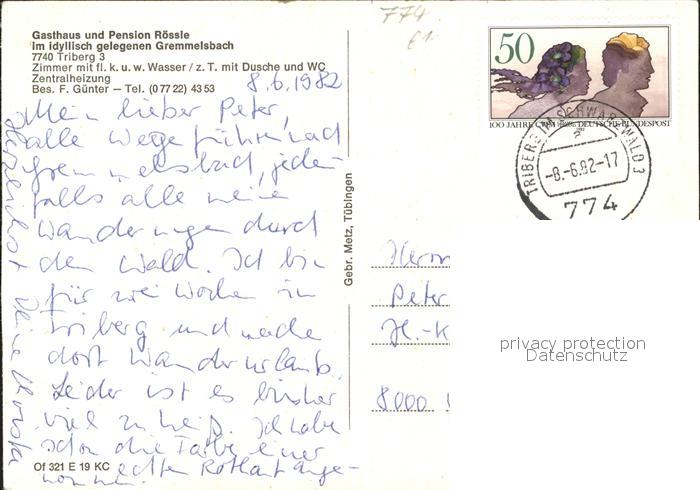 Gasthaus und Pension Rössle
Im idyllisch gelegenen Gremmelsbach
7740 Triberg 3
Zimmer mit fl. k. u. w. Wasser / z. T. mit Dusche und WC
Zentralheizung
Bes. F. Günter – Tel. (0 77 22) 43 53
8.6.1982
Mein lieber Peter,
alle Wege führen nach
Gremmelsbach, jeden-
falls alle meine
Wanderungen durch
den Wald. Ich bin
für zwei Wochen in
Triberg und mache
dort Wanderurlaub.
Leider ist es bisher
viel zu heiß. Ich habe
schon die Farbe einer
echten Rothaut ange-
nommen.
Herzlichst Deine
Of 321 E 19 KC
Gebr. Metz, Tübingen
774
£1-
50
100 JAHRE DEUTSCHE BUNDESPOST
TRIBERG IM SCHWARZWALD 3
-8.-6.82-17
774
Herrn
Peter
H.-K
8000
privacy protection
Datenschutz